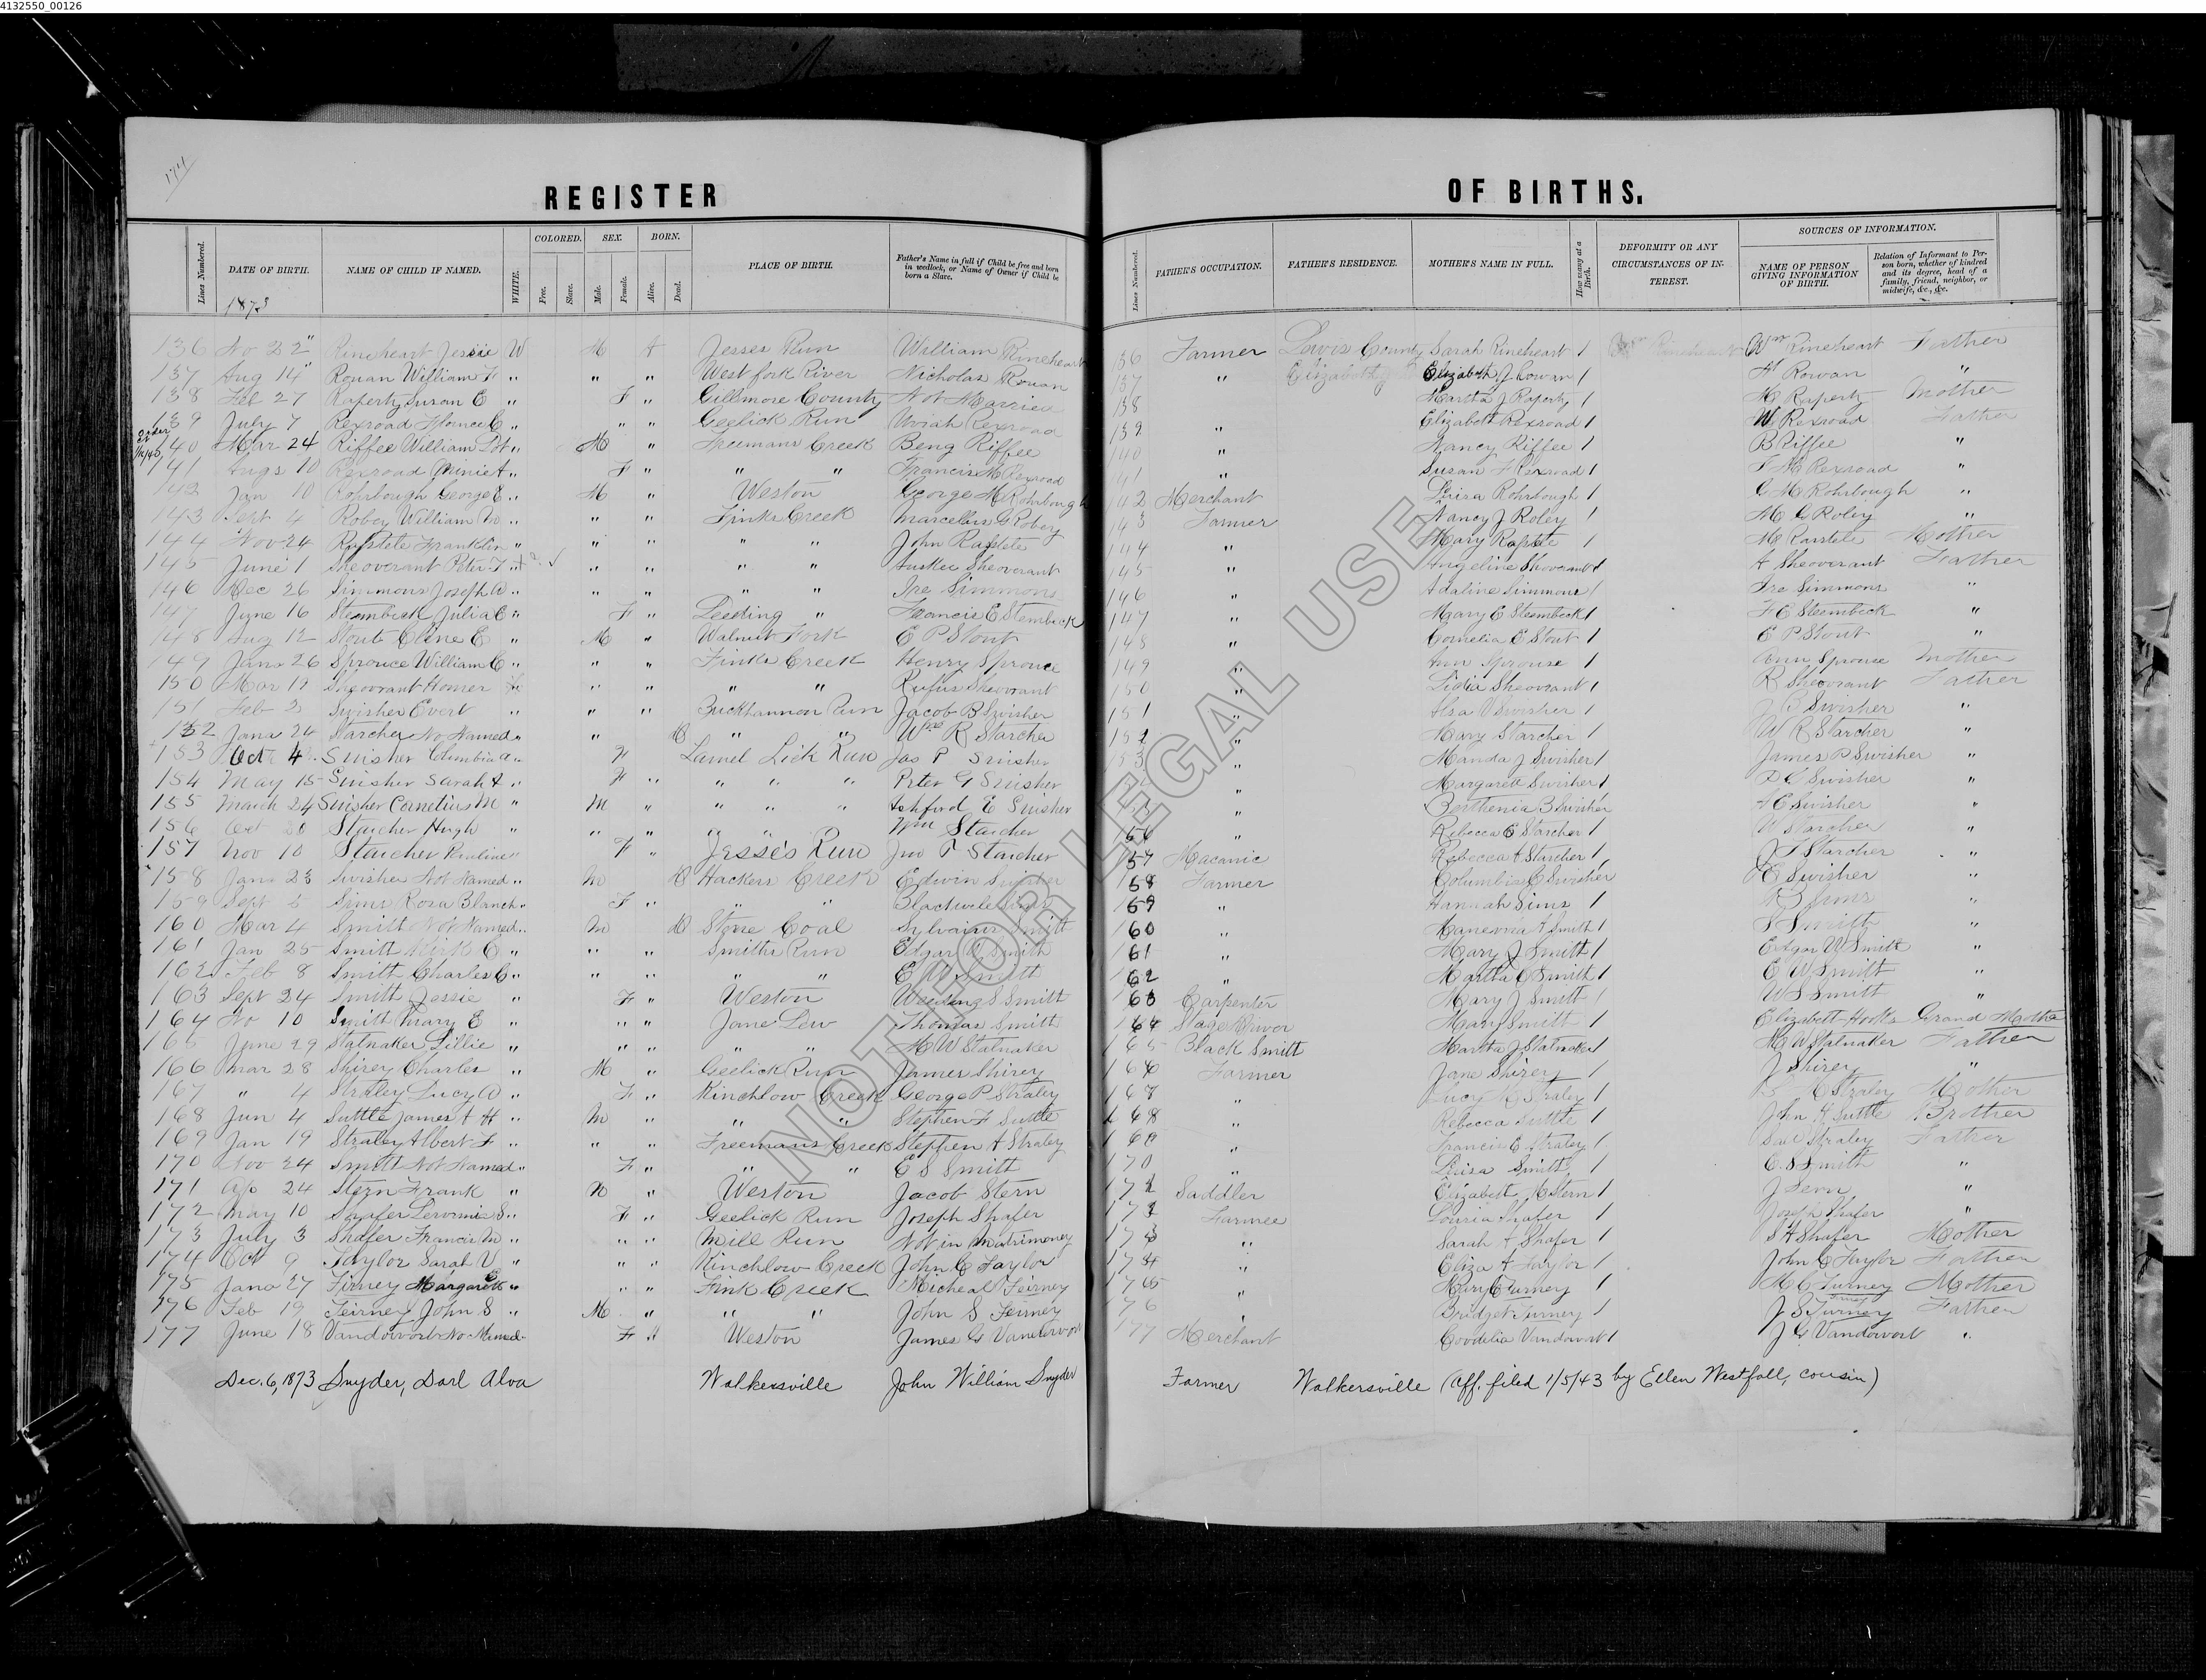 4132550_00126
174
REGISTER OF BIRTHS.
Lines Numbered. DATE OF BIRTH. NAME OF CHILD IF NAMED. WHITE. COLORED. Free. Slave. SEX. Male. Female. BORN. Alive. Dead. PLACE OF BIRTH. Father's Name in full if Child be free and born in wedlock, or Name of Owner if Child be born a Slave. Lines Numbered. FATHER'S OCCUPATION. FATHER'S RESIDENCE. MOTHER'S NAME IN FULL. How many at a Birth. DEFORMITY OR ANY CIRCUMSTANCES OF INTEREST. SOURCES OF INFORMATION. NAME OF PERSON GIVING INFORMATION OF BIRTH. Relation of Informant to Person born, whether of kindred and its degree, head of a family, friend, neighbor, or midwife, &c., &c.
1873
136 No 22" Rineheart Jessie W M A Jesses Run William Rineheart 136 Farmer Lewis County Sarah Rineheart 1 Wm Rineheart Father
137 Aug 14" Rouan William F " " " West fork River Nicholas Rouan 137 " Elizabeth J Rowan 1 N Rowan "
138 Feb 27 Raferty Susan E " F " Gillmore County Not Married 138 Martha J Raferty 1 M Raferty Mother
139 July 7 Rexroad Florence E " " " Geelick Run Uriah Rexroad 139 " Elizabeth Rexroad 1 W Rexroad Father
140 Mar 24 Riffee William " M " Freemans Creek Beng Riffee 140 " Nancy Riffee 1 B Riffee "
141 Augs 10 Rexroad " F " " " Francis M Rexroad 141 " Susan F Rexroad 1 F M Rexroad "
142 Jan 10 Rohrbough George E " M " Weston George M Rohrbough 142 Merchant Luisa Rohrbough 1 G M Rohrbough "
143 Sept 4 Robey William " " " Finks Creek Marcellus G Robey 143 Farmer Nancy J Roley 1 M G Roley "
144 Nov 24 Franklin " " " " " John 144 " Mary 1 M Mother
145 June 1 Sheoverant Peter F " " " " " Sheoverant 145 " Angeline Sheoverant 1 A Sheoverant Father
146 Dec 26 Simmons Joseph B " " " " " Ire Simmons 146 " Adaline Simmons 1 Ire Simmons "
147 June 16 Steambeck Julia E " F " Leeding " Francis E Stembeck 147 " Mary E Steembeck 1 F E Steembeck "
148 Aug 12 Stout Cline E " M " Walnut Fork E P Stout 148 " Cornelia E Stout 1 E P Stout "
149 Jana 26 Sprouce William C " " " Finks Creek Henry Sprouce 149 " Ann Sprouse 1 Ann Sprouse Mother
150 Mar 19 Sheovrant Homer " " " " Rufus Sheovrant 150 " Lidia Sheovrant 1 R Sheovrant Father
151 Feb 2 Swisher Evert " " " Buckhannon Run Jacob B Swisher 151 " Alsa V Swisher 1 J B Swisher "
152 Jana 24 Starcher No Named " " D " " Wm R Starcher 152 " Mary Starcher 1 W R Starcher "
153 Oct 4 Swisher Columbia A " F Laurel Lick Run Jas P Swisher 153 " Manda J Swisher 1 James P Swisher "
154 May 15 Swisher Sarah A " F " " " " Peter G Swisher " Margarett Swisher 1 P G Swisher "
155 March 24 Swisher Cornelius M " M " " " " Ashford E Swisher " Berthenia B Swisher A E Swisher "
156 Oct 20 Starcher Hugh " " " " " " Wm Starcher 156 " Rebecca E Starcher 1 W Starcher "
157 Nov 10 Starcher Pauline " F " Jesse's Run Jno T Starcher 157 Macanic Rebecca A Starcher 1 J T Starcher "
158 Jana 23 Swisher Not Named " M D Hackers Creek Edwin Swisher 158 Farmer Columbia C Swisher E Swisher "
159 Sept 5 Sims Rosa Blanch " F " " " Blackwell Sims 159 " Hannah Sims 1 B Sims "
160 Mar 4 Smith Not Named " M D Stone Coal Sylvanus Smith 160 " Manervia A Smith 1 S Smith "
161 Jan 25 Smith Kirk C " " " Smiths Run Edgar W Smith 161 " Mary J Smith 1 Edgar W Smith "
162 Feb 8 Smith Charles C " " " " " E W Smith 162 " Martha C Smith 1 E W Smith "
163 Sept 24 Smith Jessie " F " Weston Weeding S Smith 163 Carpenter Mary J Smith 1 W S Smith "
164 No 10 Smith Mary E " " " Jane Lew Thomas Smith 164 Stage Driver Mary Smith 1 Elizabeth Hooks Grand Mother
165 June 29 Statnaker Lillie " " " " " M W Statnaker 165 Black Smith Martha J Statnaker 1 M W Statnaker Father
166 Mar 28 Shirey Charles " M " Geelick Run James Shirey 166 Farmer Jane Shirey 1 J Shirey "
167 " 4 Straley Lucy O " F " Kinchlow Creek George P Straley 167 " Lucy M Straley 1 Straley Mother
168 Jun 4 Suttle James A H " M " " " Stephen F Suttle 168 " Rebecca Suttle 1 John H Suttle Brother
169 Jan 19 Straley Albert F " " " Freemans Creek Stephen A Straley 169 " Francis E Straley 1 Straley Father
170 Nov 24 Smith Not Named " F " " " E S Smith 170 " Luisa Smith 1 E. S Smith "
171 Ap 24 Stern Frank " M " Weston Jacob Stern 171 Saddler Elizabeth M Stern 1 J Stern "
172 May 10 Shafer S " F " Geelick Run Joseph Shafer 172 Farmer Shafer 1 Joseph Shafer "
173 July 3 Shafer Francis M " " " Mill Run Not in Matrimoney 173 " Sarah A Shafer 1 S A Shafer Mother
174 Oct 9 Taylor Sarah V " " " Kinchlow Creek John C Taylor 174 " Eliza A Taylor 1 John C Taylor Father
175 Jana 27 Tirney Margarett E " " " Fink Creek Micheal Teirney 175 " Mary C Turney 1 M C Turney Mother
176 Feb 19 Teirney John S " M " " " John S Teirney 176 " Bridget Turney 1 J S Turney Father
177 June 18 Vandervort No Named " F A Weston James G Vandervort 177 Merchant Cordelia Vandervort 1 J G Vandervort "
Dec. 6, 1873 Snyder, Darl Alva Walkersville John William Snyder Farmer Walkersville (Aff. filed 1/5/43 by Ellen Westfall, cousin)
NOT FOR LEGAL USE